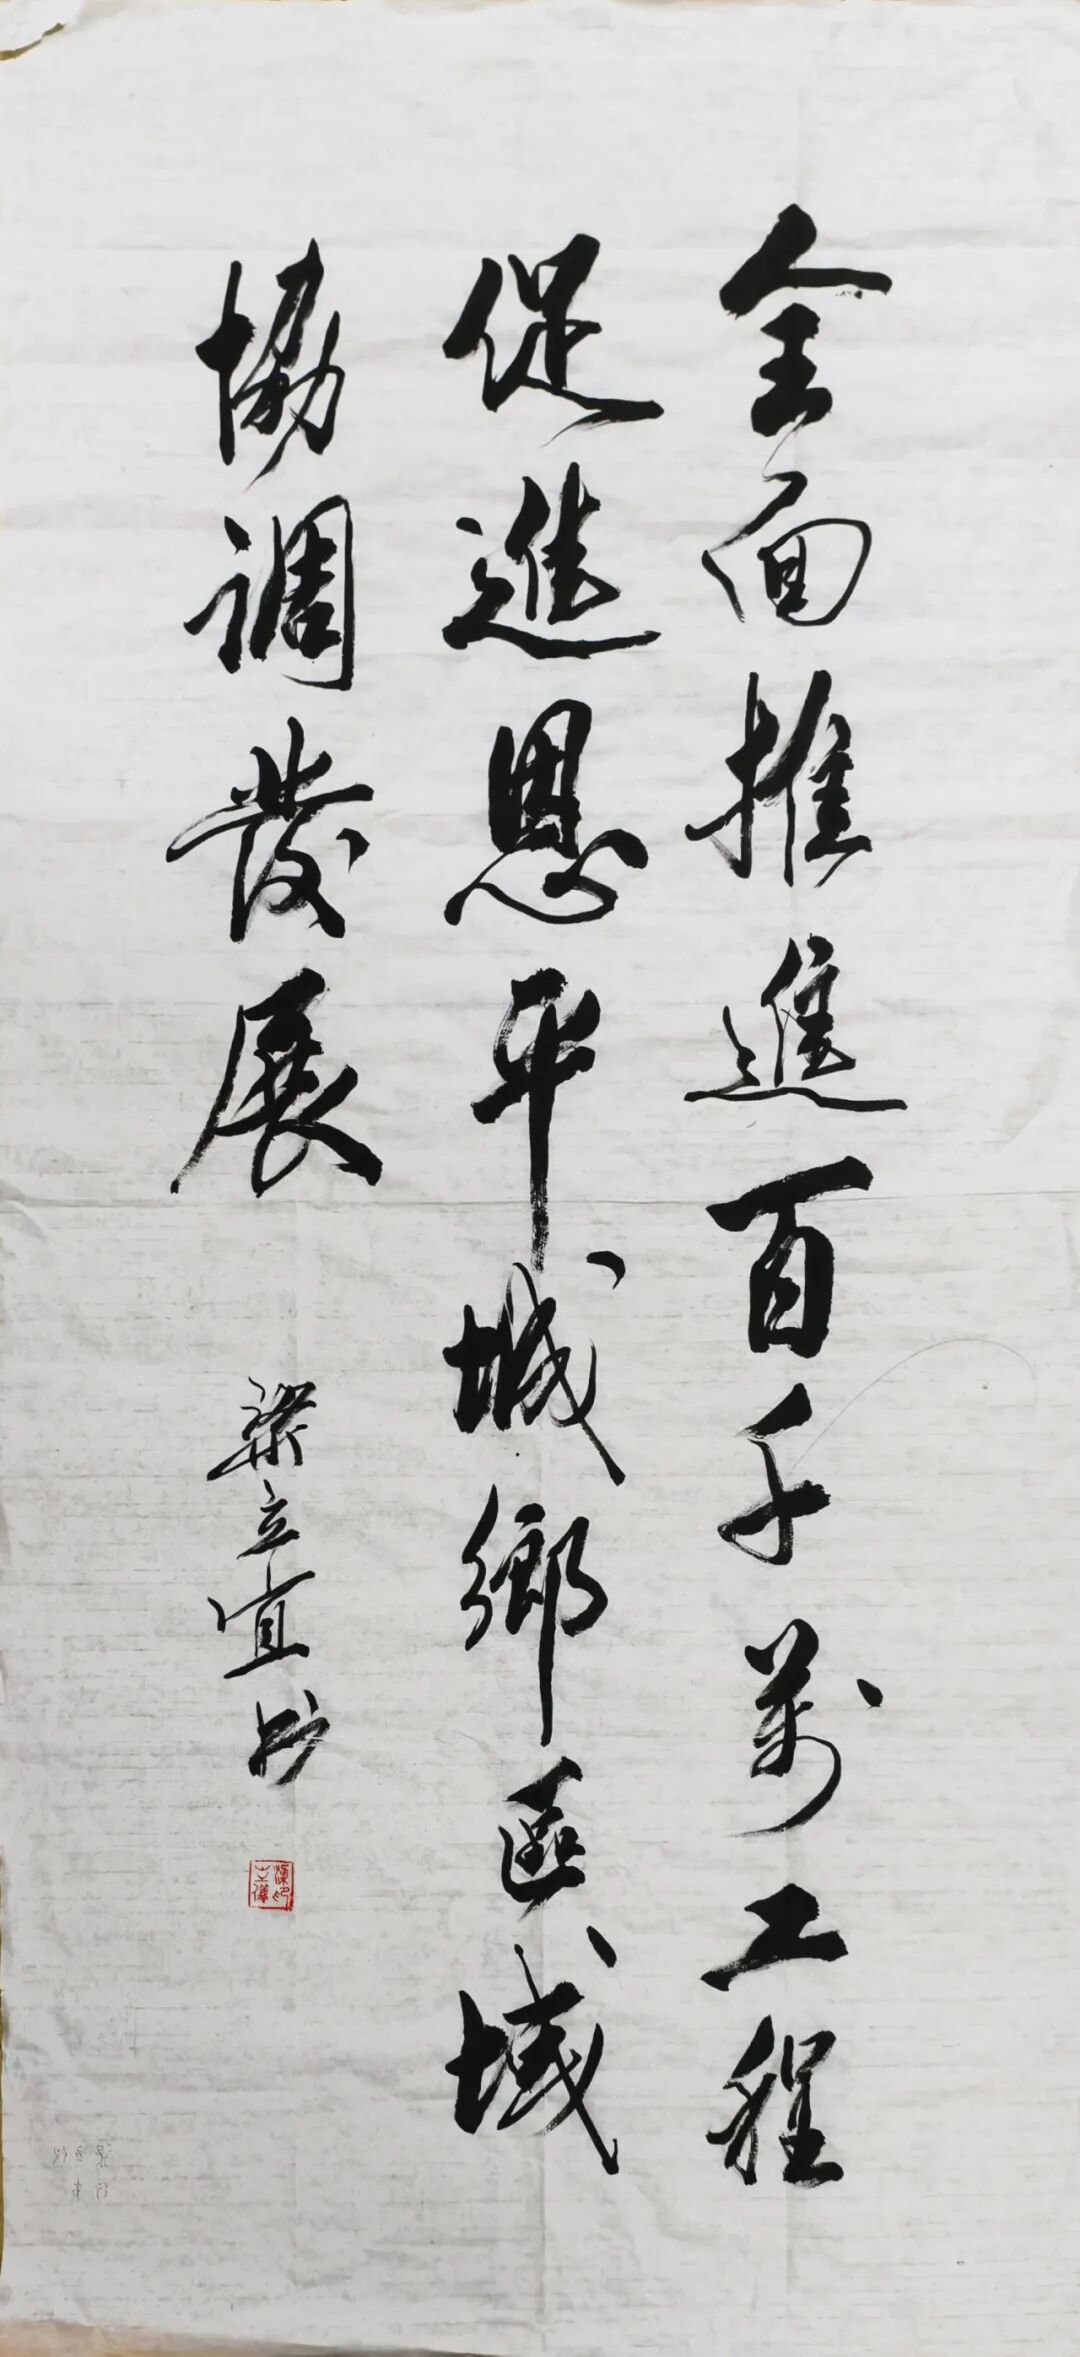 全面推進百千萬工程
促進恩平城鄉區域
協調發展
梁立宜書